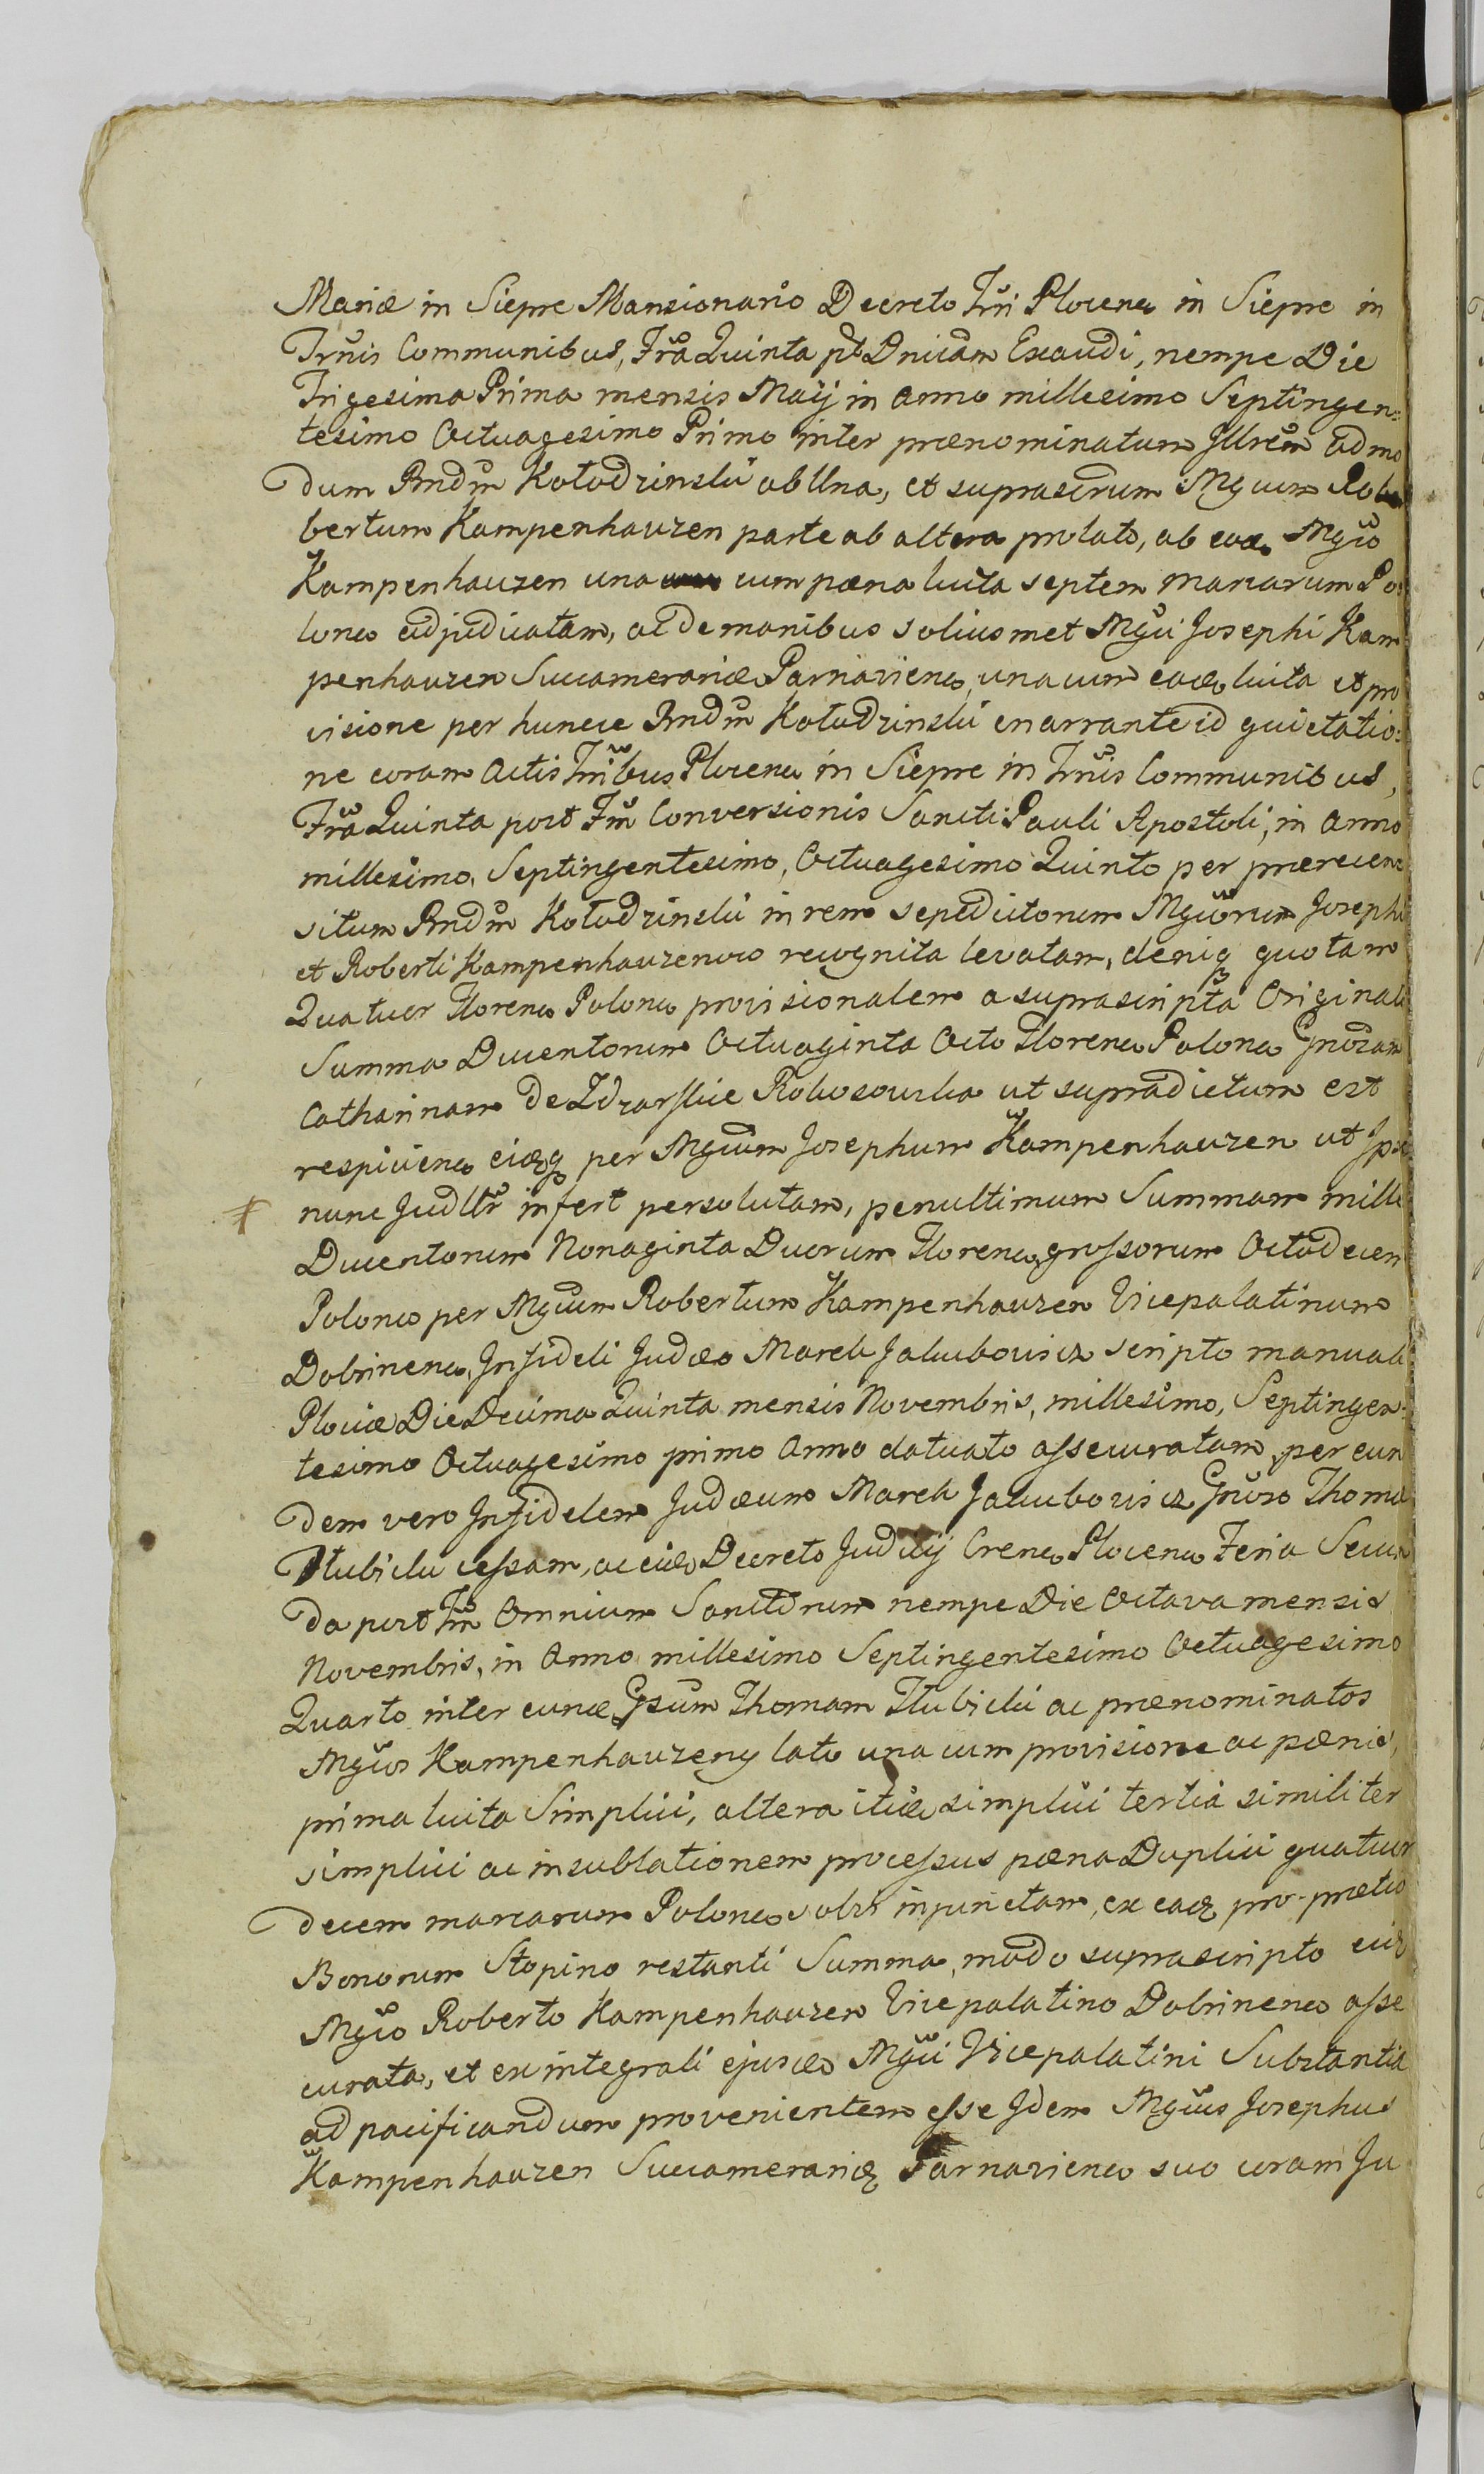 Mariæ in Sieprc Mansionario Decreto Trri Plocens in Sieprc in
Trmis Communibus, Fria Quinta pt Dnicam Exaudi, nempe Die
Trigesima Prima mensis Maij in anno millesimo Septingen=
tesimo Octuagesimo Primo inter prænominatum Jllrem Admo
dum Rndm Kołodzinski ab Una, et suprascrum Mgcum Ro
bertum Kampenhauzen parte ab altera prolato, ab eod. Mgco
Kampenhauzen una cum pæna luita septem marcarum Po=
lonc adjudicatam, ac de manibus solius met Mgci Josephi Kam
penhauzen Succamerariæ Parnaviens, una cum ead luita et pro
visione per huncce Rndm Kołudzinski enarrante id quietatio=
ne coram Actis Trribus Plocens in Sieprc in Trmis Communibus,
Fria Quinta post Ftm Conversionis Sancti Pauli Apostoli, in Anno
millesimo, Septingentesimo, Octuagesimo Quinto per præcen
situm Rndm Kołudzinski in rem sepedictorum Mgcorum Josephi
et Roberti Kampenhauzenow recognita levatam, deniq quotam
Quatuor Floren Polonc provisionalem a suprascripta Originali
Summa Ducentorum Octuaginta Octo Floren Polonc Gnosam
Catharinam De Zdzarskie Rokosowska ut supradictum est
respicien eidq per Mgcum Josephum Kampenhauzen ut Ipse
nunc Judltr infert persolutam, penultimum Summam mille
Ducentorum Nonaginta Duorum Floren grossorum Octodecem
Polonc per Mgcum Robertum Kampenhauzen Vicepalatinum
Dobrinens, Infideli Judæo Marek Jakubowicz scripto manuali
Plociæ Die Decima Quinta mensis Novembris, millesimo, Septingen=
tesimo Octuagesimo primo Anno datuato assecuratam, per eun
dem vero Infidelem Judæum Marek Jakubowicz Gnoso Thomæ
Hubicki cessam, ac eid Decreto Judicij Crens Plocens Feria Secun
da post Ftm Omnium Sanctorum nempe Die Octava mensis
Novembris, in Anno millesimo Septingentesimo Octuagesimo
Quarto inter eund Gsum Thomam Hubicki ac prænominatos
Mgcos Kampenhauzeny lato una cum provisione ac pænis,
prima luita Simplici, altera itid simplici tertia similiter
simplici ac in sublationem processus pæna Duplici quatuor
decem marcarum Polonc solvi injunctam, ex eadq pro prætio
Bonorum Stopino restanti Summa, modo suprascripto eid
Mgco Roberto Kampenhauzen Vicepalatino Dobrinens asse
curata, et ex integrali ejusd Mgci Vicepalatini Substantia
ad pacificandum provenientem esse Idem Mgcus Josephus
Kampenhauzen Succamerariq Parnaviens suo coram Ju